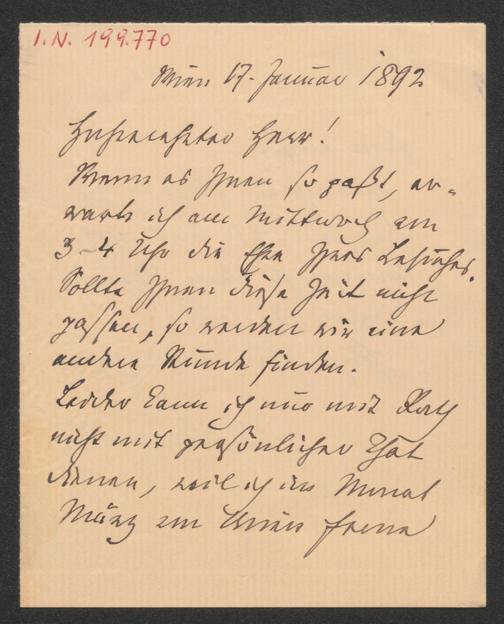 I.N. 199.770
Wien 17. Januar 1892
Hochverehrter Herr!
Wenn es Ihnen so paßt, er-
warte ich am Mittwoch um
3-4 Uhr die Ehre Ihres Besuches.
Sollte Ihnen diese Zeit nicht
passen, so werden wir eine
andere Stunde finden.
Leider kann ich nur mit Rath
nicht mit persönlicher That
dienen, weil ich im Monat
März von Wien ferne